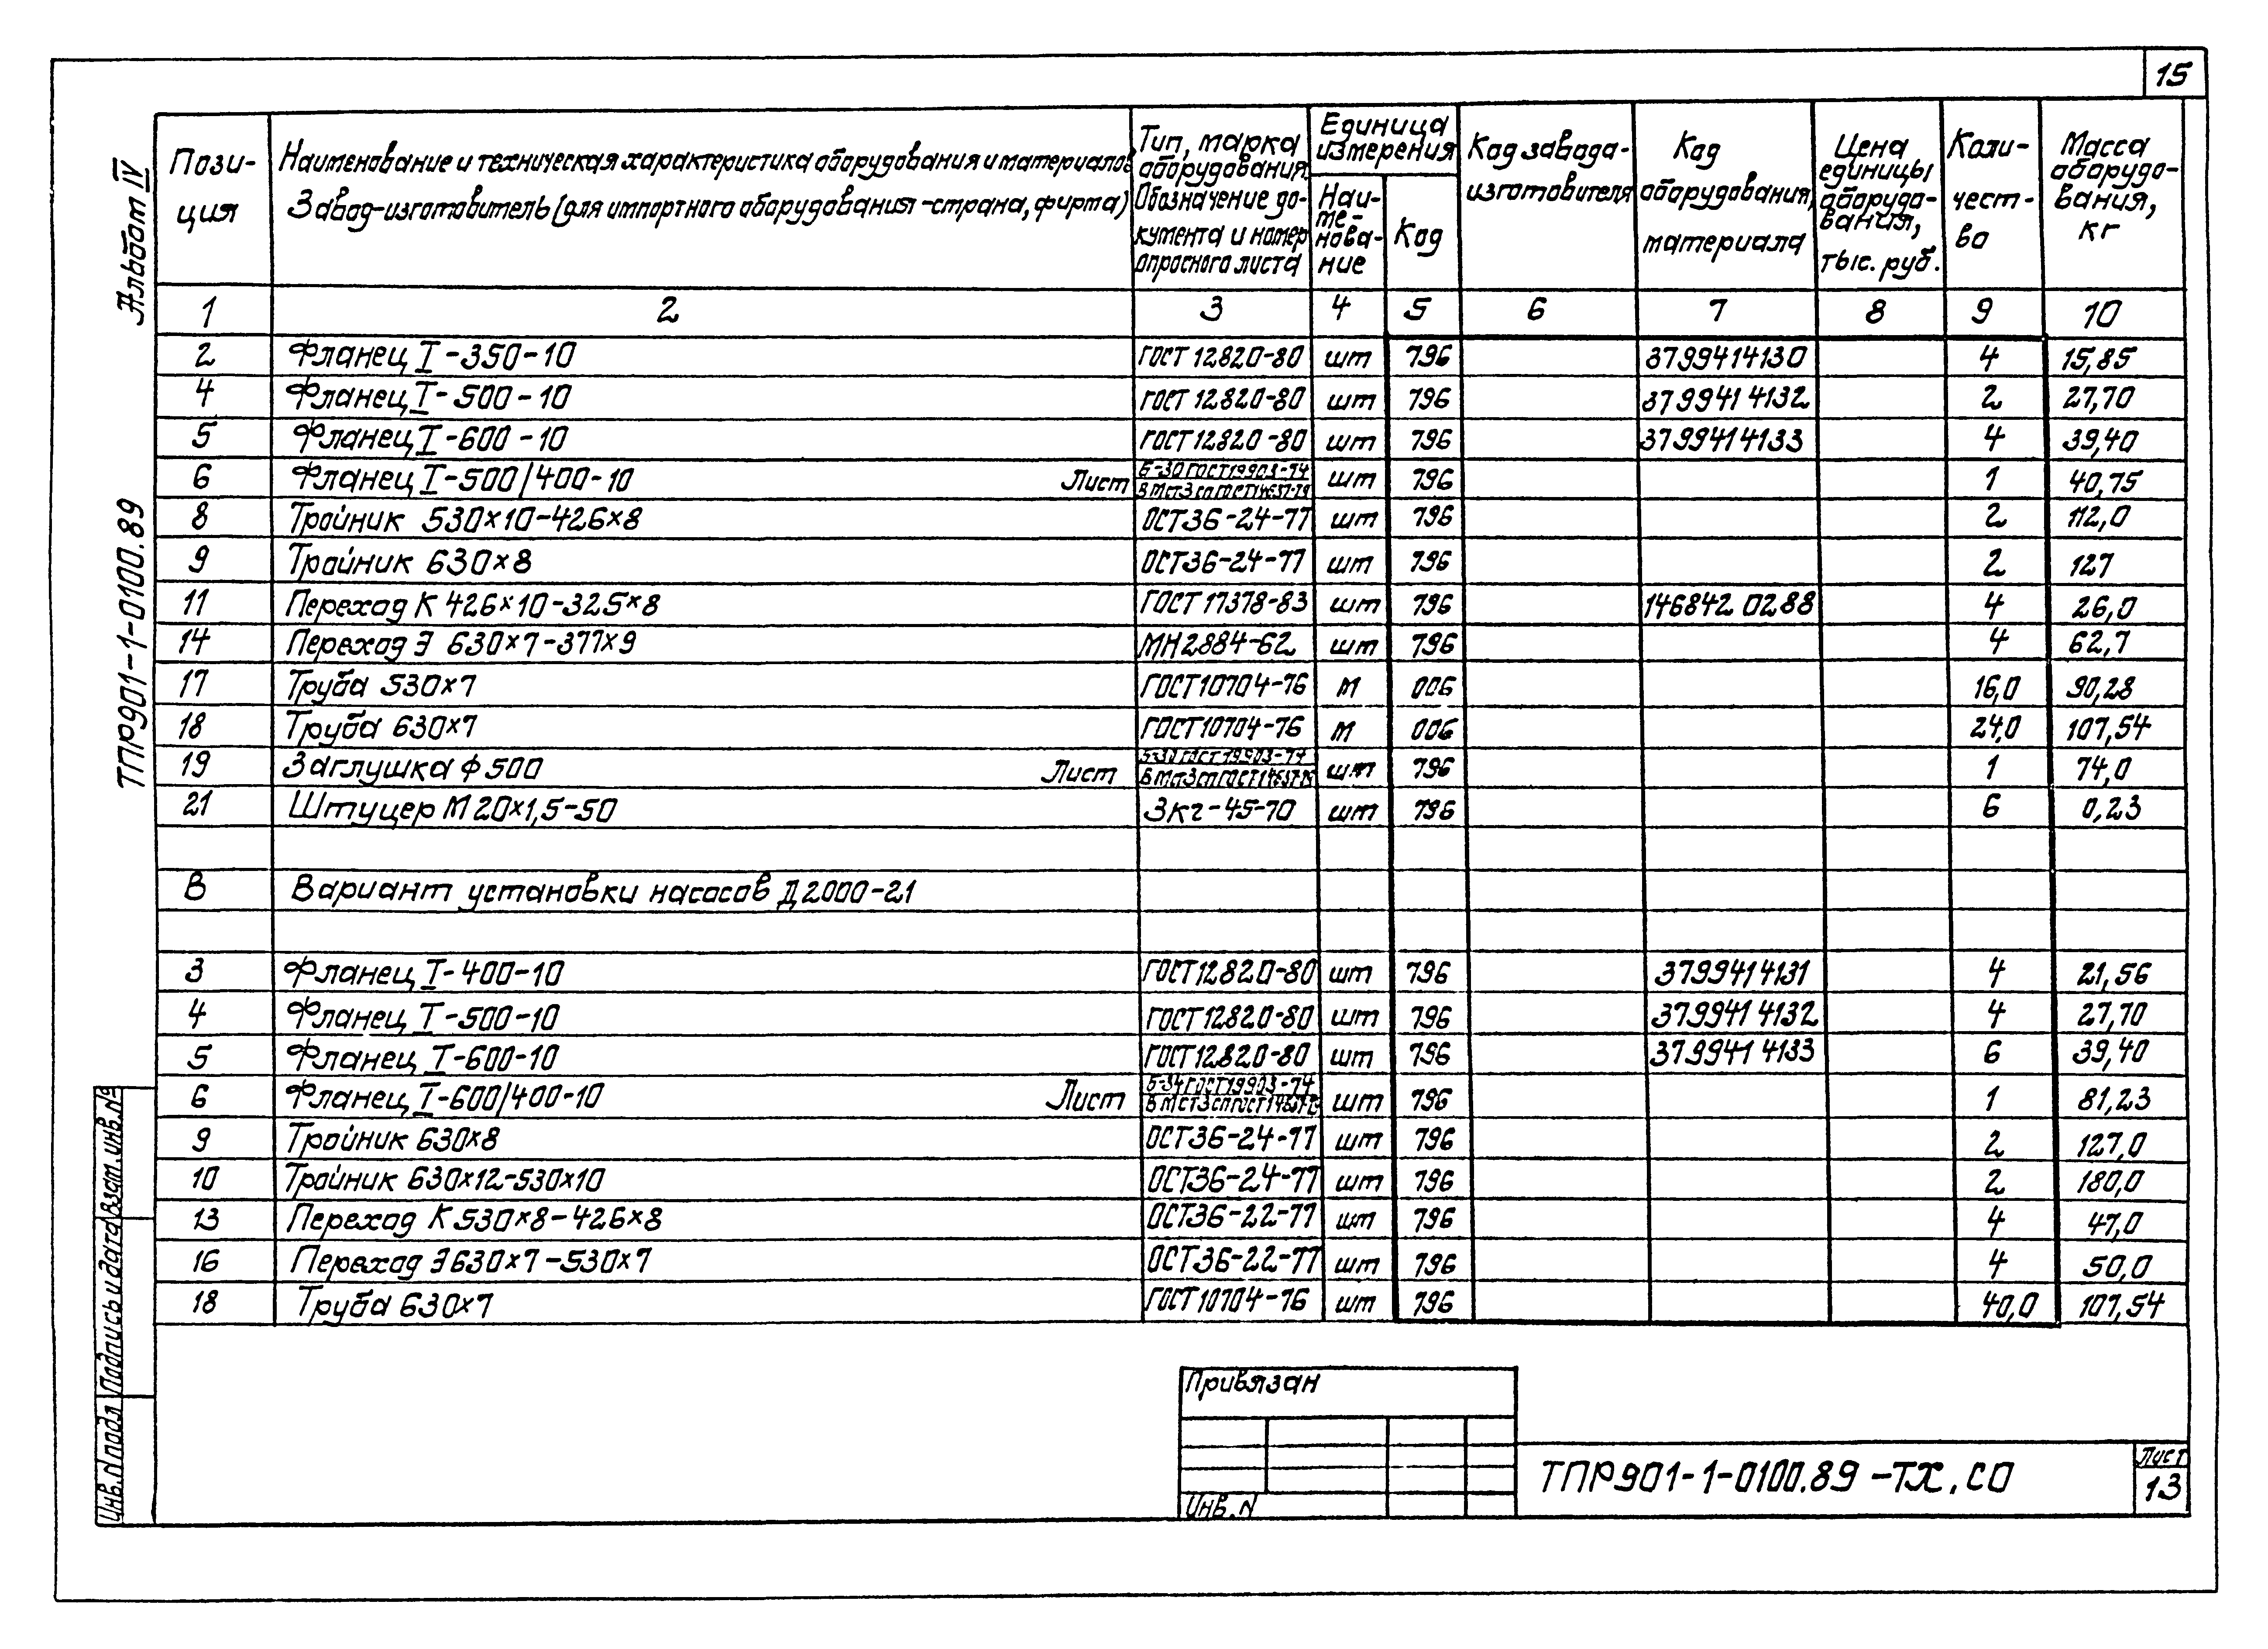 15
Альбом IV
ТПР901-1-0100.89
Пози-
ция
Наименование и техническая характеристика оборудования и материалов
Завод-изготовитель (для импортного оборудования-страна, фирма)
Тип, марка
оборудования.
Обозначение до-
кумента и номер
опросного листа
Единица
измерения
Наи-
ме-
нова-
ние
Код
Код завода-
изготовителя
Код
оборудования,
материала
Цена
единицы
оборудо-
вания,
тыс. руб.
Коли-
чест-
во
Масса
оборудо-
вания,
кг
1 2 3 4 5 6 7 8 9 10
2 Фланец I-350-10 ГОСТ 12820-80 шт 796 3799414130 4 15,85
4 Фланец I-500-10 ГОСТ 12820-80 шт 796 3799414132 2 27,70
5 Фланец I-600-10 ГОСТ 12820-80 шт 796 3799414133 4 39,40
6 Фланец I-500/400-10 Лист Б-30 ГОСТ19903-74 шт 796 1 40,75
ВМст3сп ГОСТ14637-79
8 Тройник 530×10-426×8 ОСТ36-24-77 шт 796 2 112,0
9 Тройник 630×8 ОСТ36-24-77 шт 796 2 127
11 Переход К 426×10-325×8 ГОСТ 17378-83 шт 796 146842 0288 4 26,0
14 Переход Э 630×7-377×9 МН2884-62 шт 796 4 62,7
17 Труба 530×7 ГОСТ10704-76 м 006 16,0 90,28
18 Труба 630×7 ГОСТ10704-76 м 006 24,0 107,54
19 Заглушка ф500 Лист Б-30 ГОСТ 19903-74 шт 796 1 74,0
ВМст3сп ГОСТ14637-79
21 Штуцер М20×1,5-50 Зкг-45-70 шт 796 6 0,23
В Вариант установки насосов Д2000-21
3 Фланец I-400-10 ГОСТ12820-80 шт 796 3799414131 4 21,56
4 Фланец I-500-10 ГОСТ12820-80 шт 796 3799414132 4 27,70
5 Фланец I-600-10 ГОСТ12820-80 шт 796 3799414133 6 39,40
6 Фланец I-600/400-10 Лист Б-34 ГОСТ19903-74 шт 796 1 81,23
ВМСт3сп ГОСТ14637-79
9 Тройник 630×8 ОСТ36-24-77 шт 796 2 127,0
10 Тройник 630×12-530×10 ОСТ36-24-77 шт 796 2 180,0
13 Переход К530×8-426×8 ОСТ36-22-77 шт 796 4 47,0
16 Переход Э630×7-530×7 ОСТ36-22-77 шт 796 4 50,0
18 Труба 630×7 ГОСТ 10704-76 шт 796 40,0 107,54
Взам. инв. №
Подпись и дата
Инв. N подл
Привязан
Инв. N
ТПР901-1-0100.89 -ТХ.СО
Лист
13